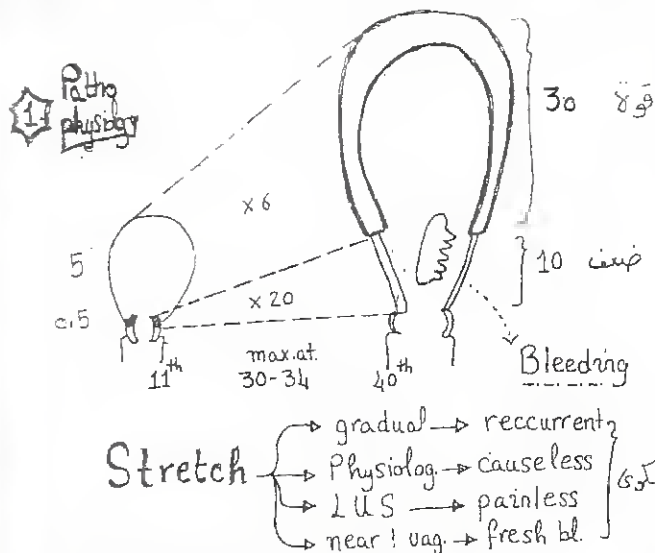 1 Patho
physiology
x 6
30 قوي
5
x 20
10 ضعيف
0.5
11th
max.at.
30-34
40th
Bleeding
Stretch
gradual → reccurent
Physiolog. → causeless
LUS → painless
near ! vag. → fresh bl.